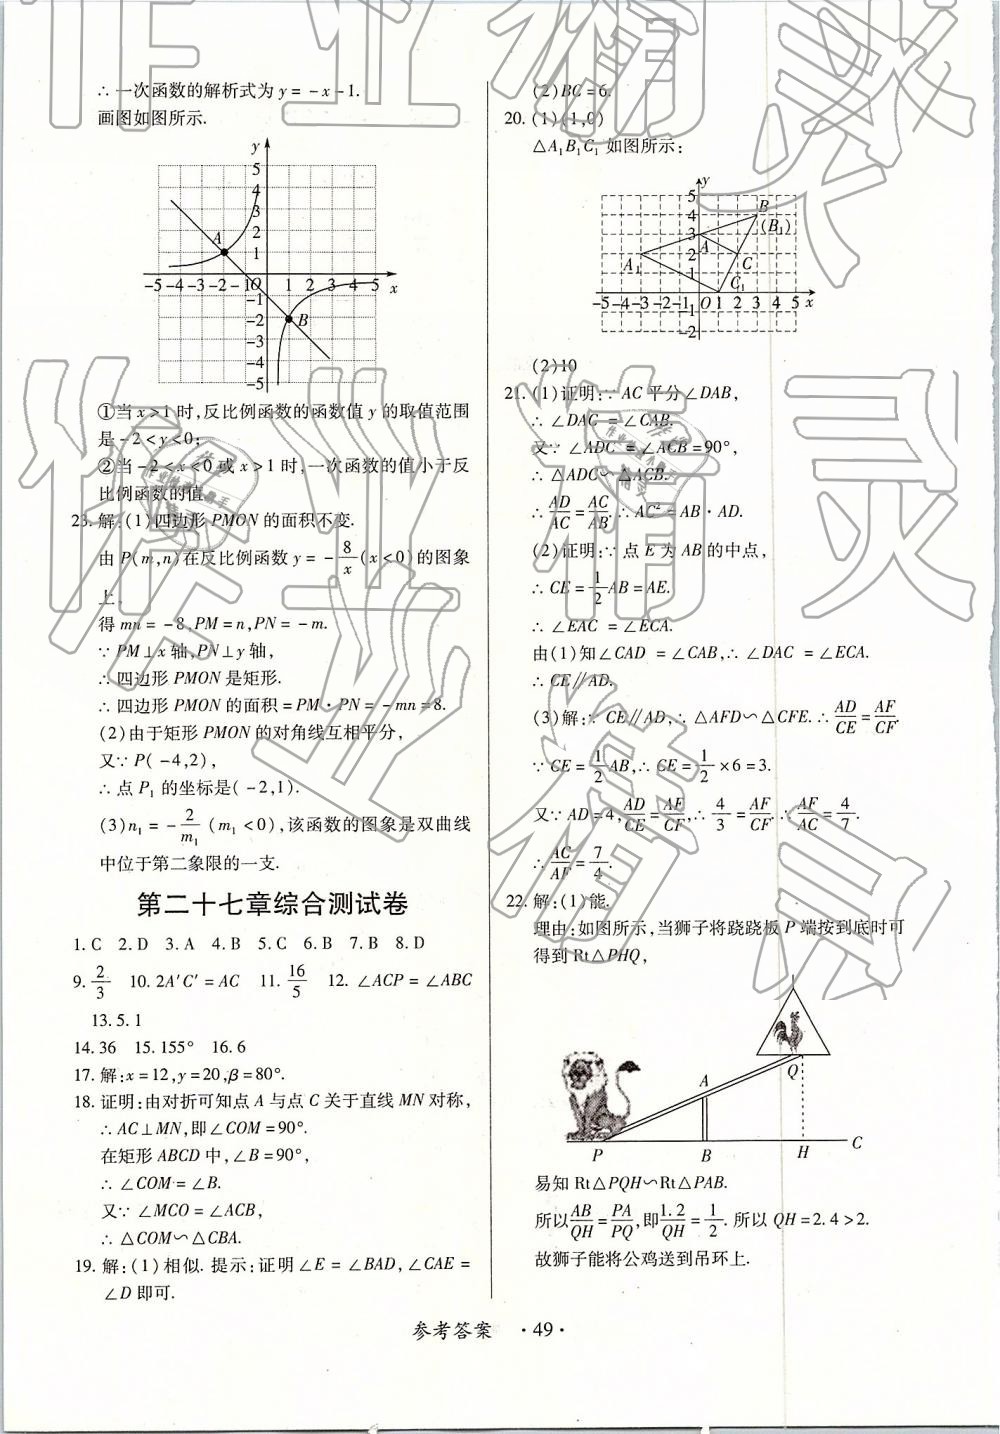 ∴一次函数的解析式为y=-x-1.
画图如图所示.
y
5
4
3
2
1
A
-5-4-3-2-1O 1 2 3 4 5 x
-1
-2
-3
-4
-5
B
①当x>1时,反比例函数的函数值y的取值范围
是-2<y<0;
②当-2<x<0或x>1时,一次函数的值小于反
比例函数的值.
23.解:(1)四边形PMON的面积不变.
由P(m,n)在反比例函数y=-8/x(x<0)的图象
上,
得mn=-8,PM=n,PN=-m.
∵PM⊥x轴,PN⊥y轴,
∴四边形PMON是矩形.
∴四边形PMON的面积=PM·PN=-mn=8.
(2)由于矩形PMON的对角线互相平分,
又∵P(-4,2),
∴点P₁的坐标是(-2,1).
(3)n₁=-2/m₁(m₁<0),该函数的图象是双曲线
中位于第二象限的一支.
第二十七章综合测试卷
1.C 2.D 3.A 4.B 5.C 6.B 7.B 8.D
9.2/3 10.2A′C′=AC 11.16/5 12.∠ACP=∠ABC
13.5.1
14.36 15.155° 16.6
17.解:x=12,y=20,β=80°.
18.证明:由对折可知点A与点C关于直线MN对称,
∴AC⊥MN,即∠COM=90°.
在矩形ABCD中,∠B=90°,
∴∠COM=∠B.
又∵∠MCO=∠ACB,
∴△COM∽△CBA.
19.解:(1)相似.提示:证明∠E=∠BAD,∠CAE=
∠D即可.
(2)BC=6.
20.(1)(1,0)
△A₁B₁C₁如图所示:
y
5
4
3
2
1
B
(B₁)
A
A₁
C
C₁
-5-4-3-2-1 O 1 2 3 4 5 x
-1
-2
(2)10
21.(1)证明:∵AC平分∠DAB,
∴∠DAC=∠CAB.
又∵∠ADC=∠ACB=90°,
∴△ADC∽△ACB.
∴AD/AC=AC/AB.∴AC²=AB·AD.
(2)证明:∵点E为AB的中点,
∴CE=1/2AB=AE.
∴∠EAC=∠ECA.
由(1)知∠CAD=∠CAB,∴∠DAC=∠ECA.
∴CE∥AD.
(3)解:∵CE∥AD,∴△AFD∽△CFE.∴AD/CE=AF/CF.
∵CE=1/2AB,∴CE=1/2×6=3.
又∵AD=4,AD/CE=AF/CF,∴4/3=AF/CF.∴AF/AC=4/7.
∴AC/AF=7/4.
22.解:(1)能.
理由:如图所示,当狮子将跷跷板P端按到底时可
得到Rt△PHQ,
A
Q
P
B
H
C
易知Rt△PQH∽Rt△PAB.
所以AB/QH=PA/PQ,即1.2/QH=1/2.所以QH=2.4>2.
故狮子能将公鸡送到吊环上.
参考答案 ·49·
作业精灵
作业精灵
作业精灵